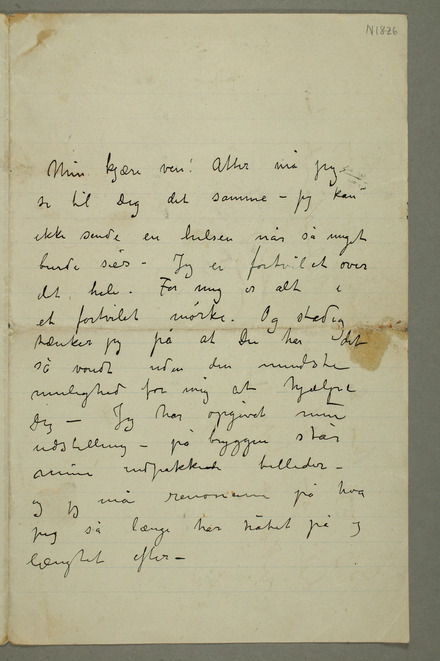 N1826
Min kjære ven! Atter må jeg
si til Dig det samme – jeg kan
ikke sende en hilsen når så meget
burde siés – Jeg er fortvilet over
det hele. For mig er alt i
et fortvilet mørke. Og stadig
tænker jeg på at Du har det
så vondt uden den mindste
mulighed for mig at hjælpe
Dig — Jeg har opgivet min
udstilling – på bryggen står
mine indpakkede billeder –
og jeg må renoncere på hva
jeg så længe har håbet på og
længtet efter –